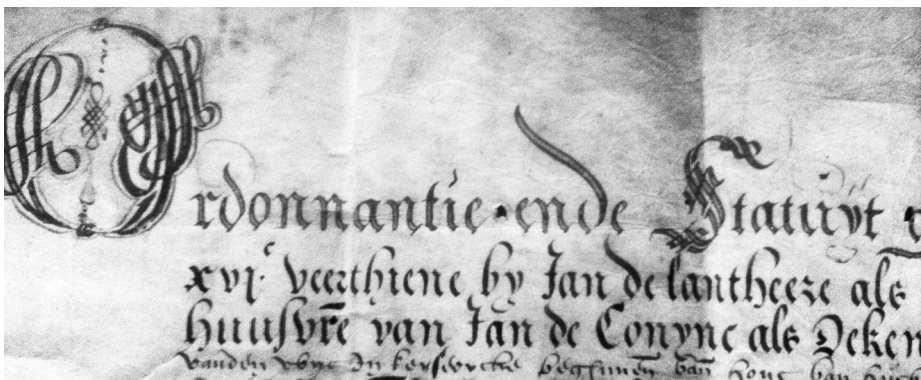 Ordonnantie ende Statuÿt
xvj.c veerthiene by Jan de lantheeze als
huusvre van Jan de Conync als Deken
vanden